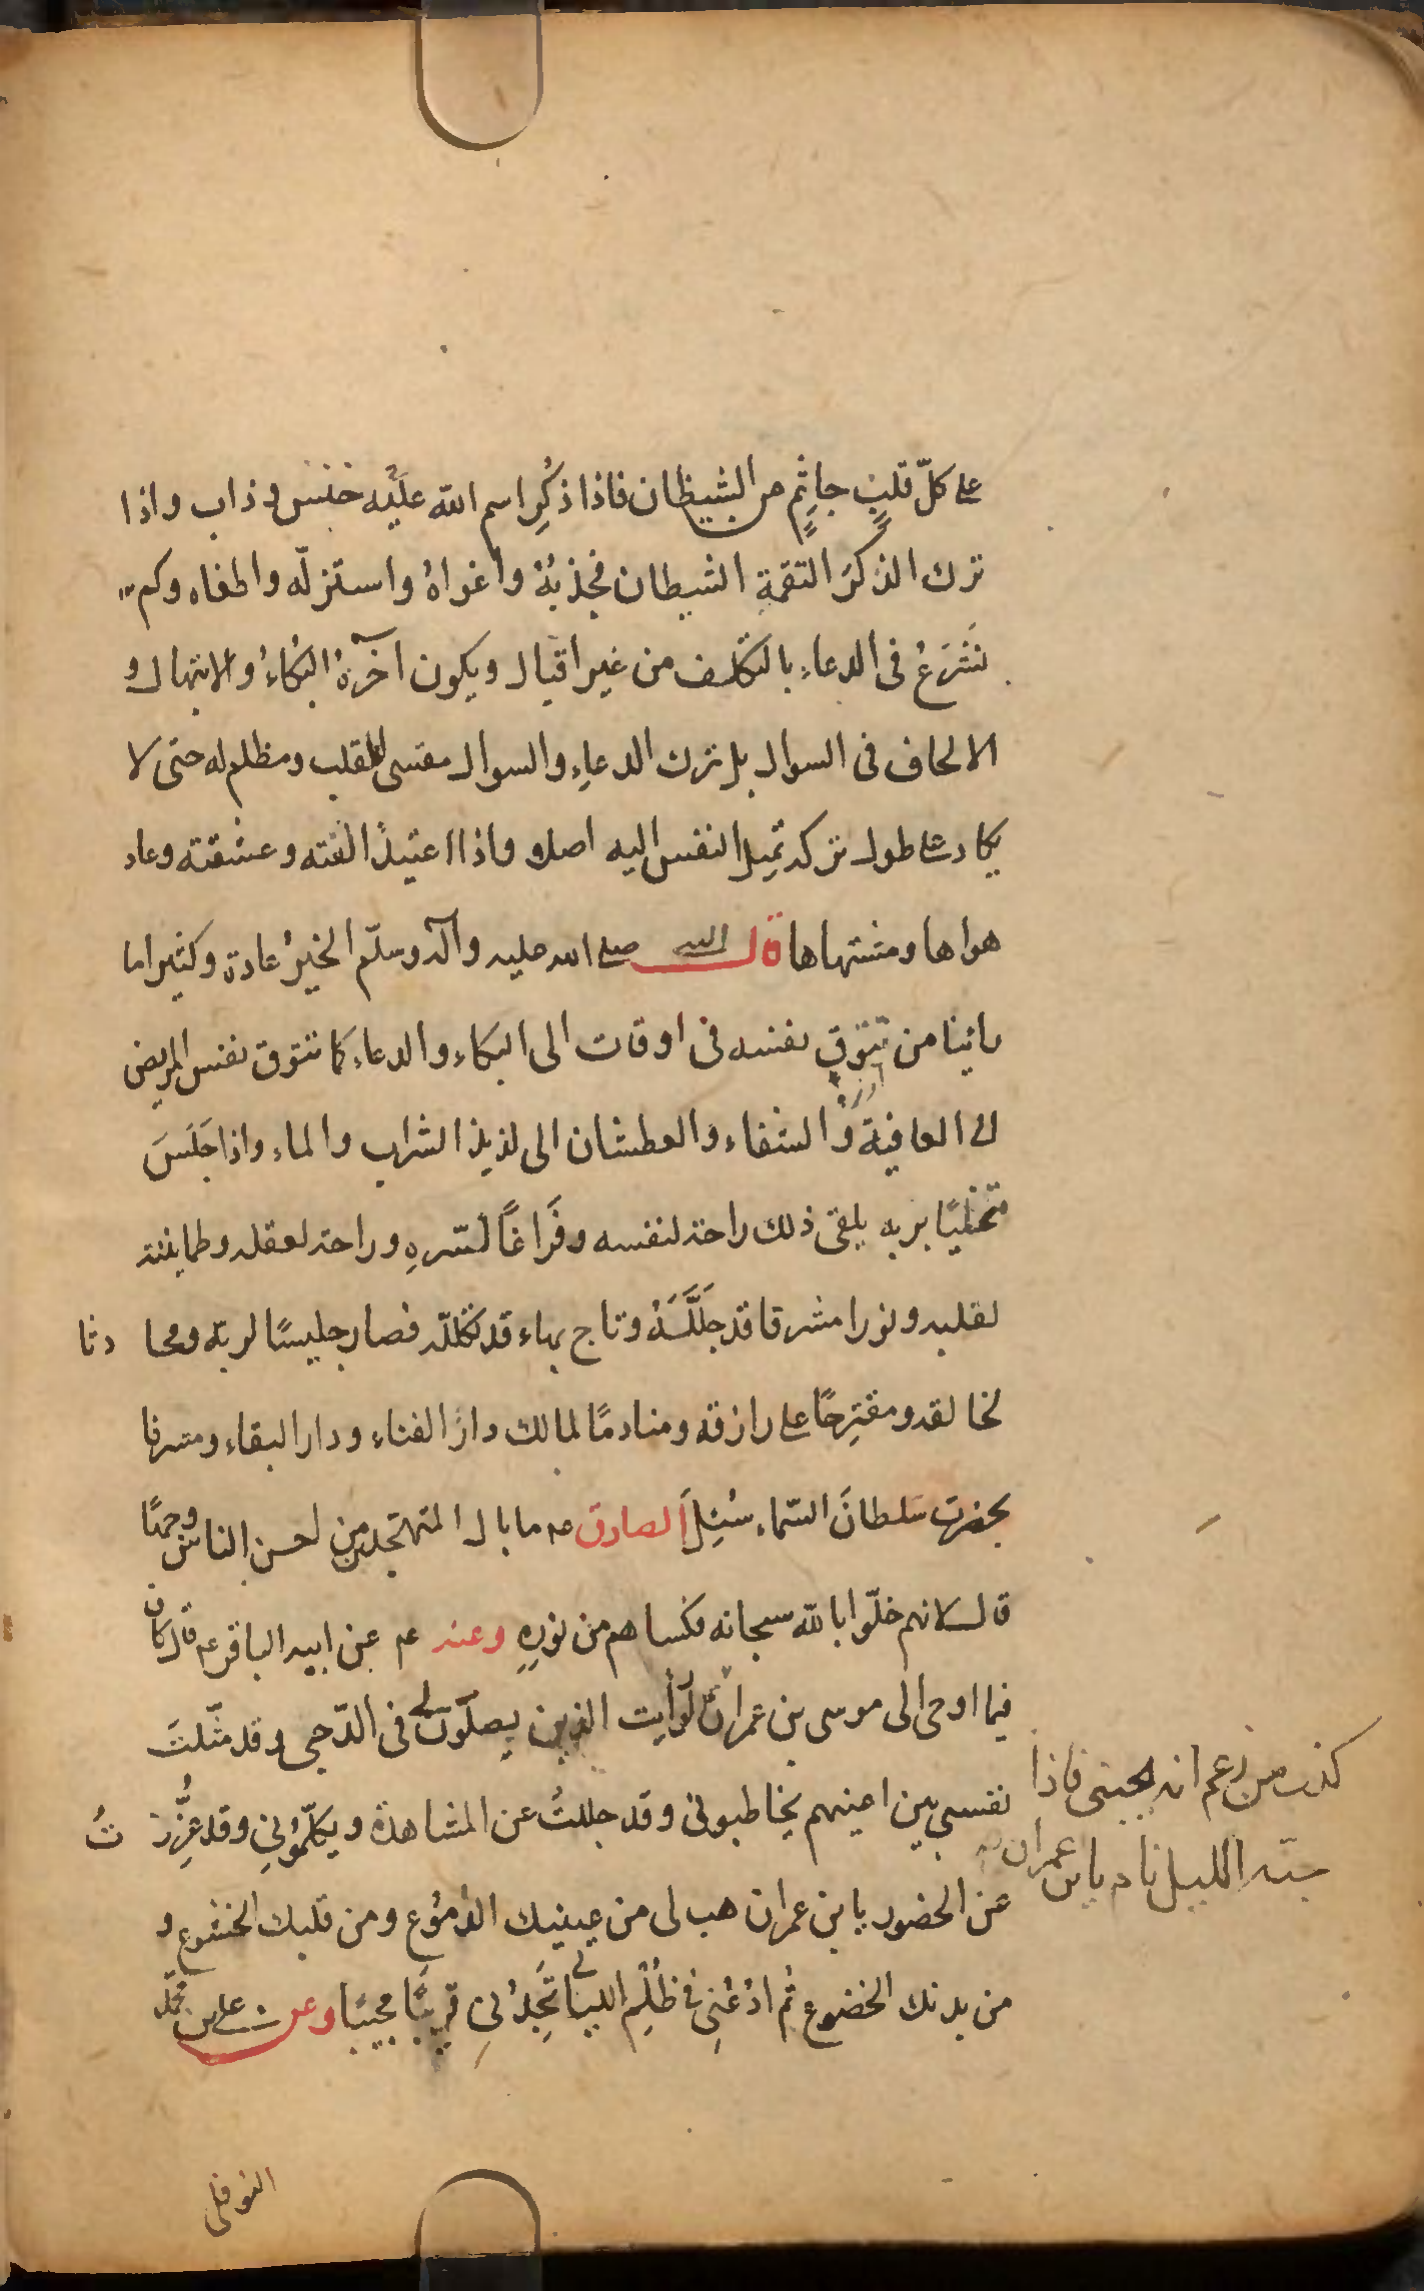 على كلّ قلبٍ جاثِمٍ من الشيطان فاذا ذُكِر اسم الله علَيْه خنس وذاب واذا
ترك الذكرَ التقمة الشيطان فجذبهُ واغواهُ واستزلّه واطغاه وكم
نَشَرَعُ فى الدعاءِ بالتكلف من غير اقبال ويكون آخرهُ البكاءُ والابتهال و
الالحاف فى السوال بل ترك الدعاءِ والسوال مقسى للقلب ومظلم له حتى لا
يكاد على طول تركه تميل النفس اليه اصلا واذا اعتيد الفته وعشقته وعاد
هواها ومشتهاها قال النبي صلى الله عليه وآله وسلّم الخيرُ عادة وكثيراما
رائينا من تتوق نفسه فى اوقات الى البكاء والدعاء كما تتوق نفس المريض
الى العافية والشفاء والعطشان الى لذيذ الشراب والماء واذا جَلَسَ
متخليًا بربه يلقى ذلك راحة لنفسه وفَراغًا لسّرهِ وراحة لعقله وطمانينة
لقلبه ونورا مشرقا قد جَلَّلَهُ وتاج بهاء قد تكلله فصار جليسًا لربّه ومحا دثا
لخالقه ومقترِحًا على رازقه ومنادمًا لمالك دارُ الفناء ودار البقاء ومشرفا
بحضرت سَلطانَ السّماء سُئِلَ الصادق عه ما بال المتهجدين احسن الناس وجهًا
قال لانهم خلّوا بالله سبحانه فكساهم من نورِهِ وعنه عم عن ابيه الباقر عم قال كان
فيما اوحى الى موسى بن عمران لوْ رأيت الذين يصلّون لى فى الدّجى وقد مثّلتَ
نفسى بين اعينهم يخاطبونى وقد جللتُ عن المشاهدة ويكلّمُونِى وقد عُزِّزْ تُ
كذب من زعم انه يحبنى فاذا
جنّه الليل نام يا بن عمران
عن الحضور يا بن عمران هب لى من عينيك الدُمُوع ومن قلبك الخشوع و
من بدنك الخضوع ثُم ادْعُنِى فى ظُلَمِ الليالى تَجِدُنِى قريبًا مجيبًا وعن على بن محمّد
النوفلى